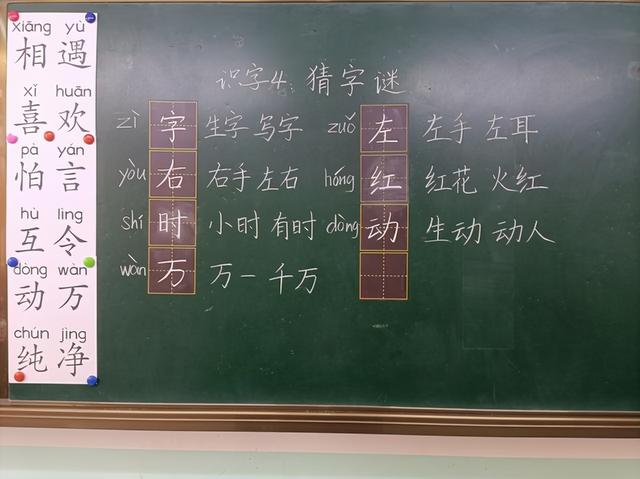 xiāng yù
相遇
xǐ huān
喜欢
pà yán
怕言
hù lìng
互令
dòng wàn
动万
chún jìng
纯净
识字4:猜字谜
zì 字 生字 写字 zuǒ 左 左手 左耳
yòu 右 右手 左右 hóng 红 红花 火红
shí 时 小时 有时 dòng 动 生动 动人
wàn 万 万一 千万